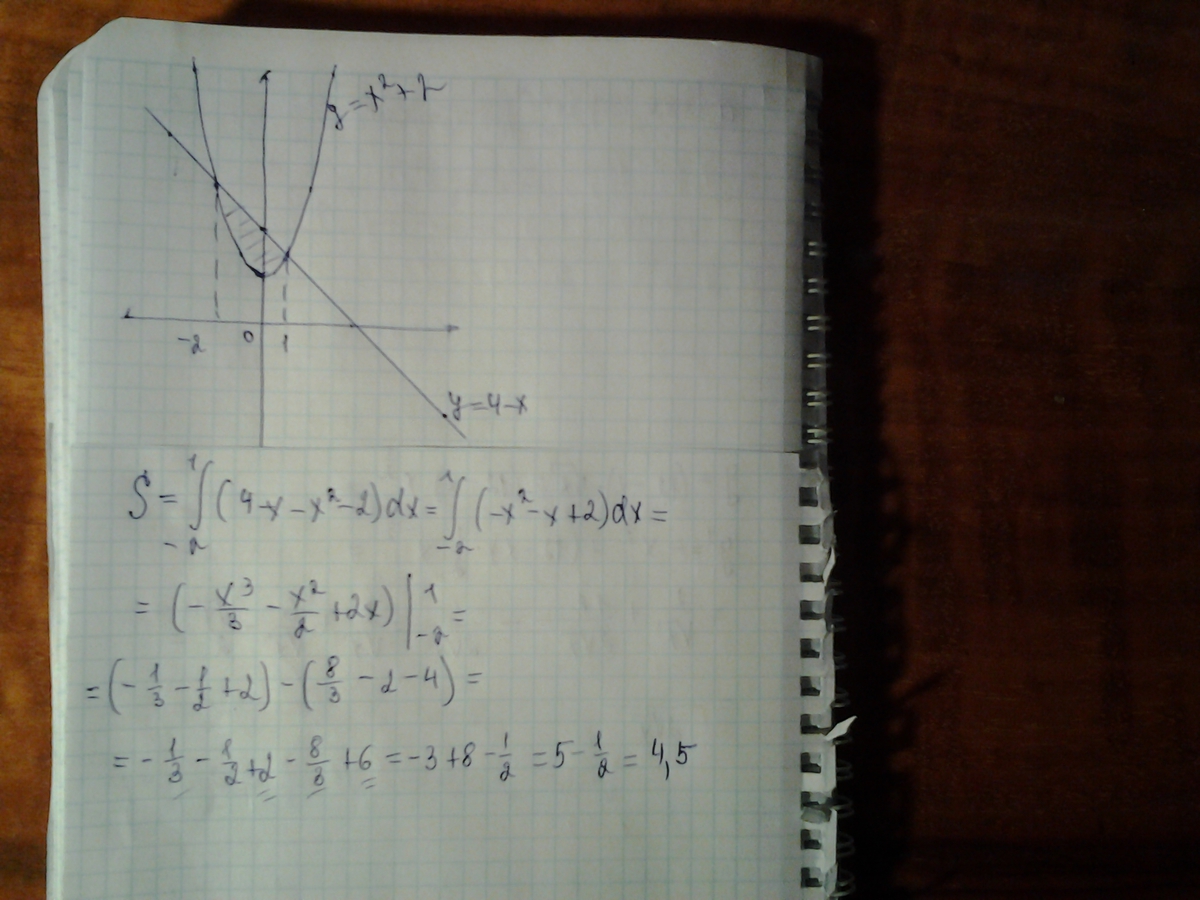 y=x²+2
-2 0 1
y=4-x
S = ∫₋₂¹ (4-x-x²-2)dx = ∫₋₂¹ (-x²-x+2)dx =
= (-x³/3 - x²/2 + 2x) |₋₂¹ =
= (-1/3 - 1/2 + 2) - (8/3 - 2 - 4) =
= -1/3 - 1/2 + 2 - 8/3 + 6 = -3 + 8 - 1/2 = 5 - 1/2 = 4,5